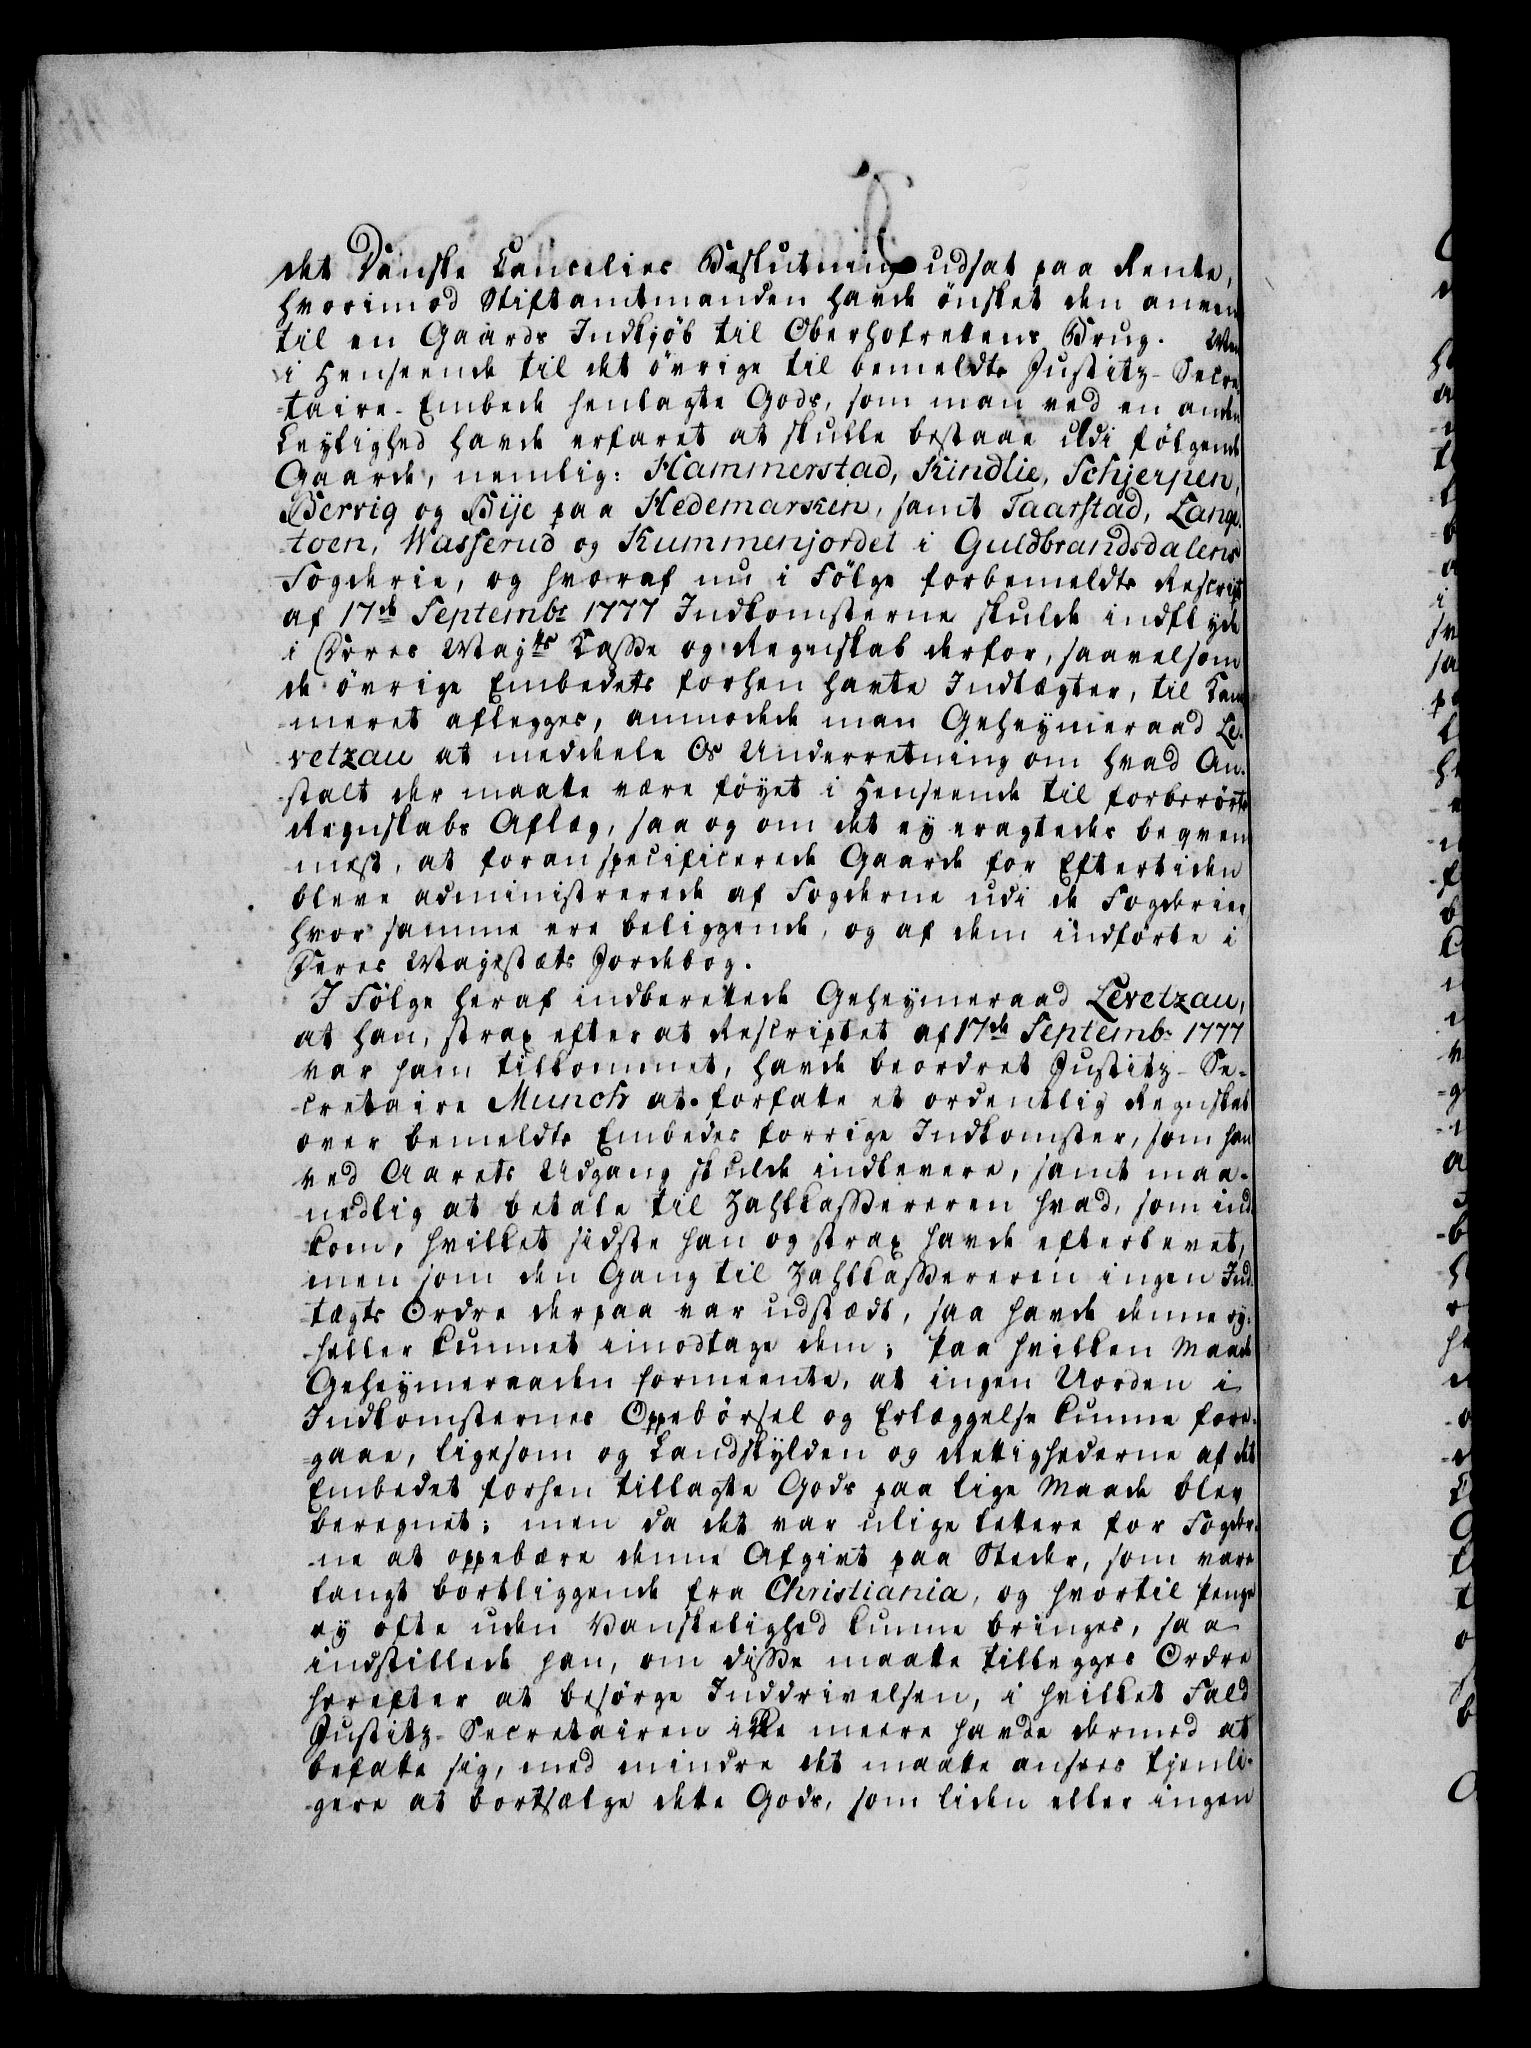 det Danske Cancelies Beslutning udsat paa Rente,
hvorimod Stiftamtmanden havde ønsket den anven
til en Gaards Indkjöb til Oberhofretens Brug. Men
i Henseende til det övrige til bemeldte Justitz-Secre
-taire-Embede henlagte Gods, som man ved en anden
Leylighed havde erfaret at skulle bestaae udi følgende
Gaarde, nemlig: Hammerstad, Kindlie, Schjerpen,
Berrig og Bije paa Hedemarken, samt Taarstad, Lange-
-toen, Wasserud og Kummenjordet i Guldbrandsdalens
Fogderie, og hvoraf nu i Fölge forbemeldte Rescript
af 17de Septembr 1777 Indkomsterne skulde indflyde
i Deres Mayts Casse og Regnskab derfor, saavelsom
de övrige Embedets forhen havte Indtægter, til Cam
meret aflegges, anmodede man Geheymeraad Le-
vetzau at meddeele Os Underretning om hvad An-
-stalt der maatte være föyet i Henseende til forberörte
Regnskabs Aflæg, saa og om det ey eragtedes beqvem
mest, at foranspecificerede Gaarde for Eftertiden
bleve administrerede af Fogderne udi de Fogderier,
hvor samme ere beliggende, og af dem indförte i
Deres Majestæts Jordebog.
I Fölge heraf indberettede Geheymeraad Levetzau,
at han, strax efter at Rescriptet af 17de Septembr 1777
var ham tilkommet, havde beordret Justitz-Se-
-cretaire Munch at forfatte et ordentlig Regnskab
over bemeldte Embedes forrige Indkomster, som han
ved Aarets Udgang skulde indlevere, samt maa-
-nedlig at betale til Zahlkassereren hvad, som ind-
kom, hvilket sidste han og strax havde efterlevet,
men som den Gang til Zahlkassereren ingen Ind-
-tægts Ordre derpaa var udstædt, saa havde denne ey-
-heller kunnet imodtage dem; Paa hvilken Maade
Geheymeraaden formeente, at ingen Uorden i
Indkomsternes Oppebörsel og Erlæggelse kunne fore-
-gaae, ligesom og Landskylden og Rettighederne af det
Embedet forhen tillagte Gods paa lige Maade blev
beregnet; men da det var ulige lettere for Fogder-
-ne at oppebære denne Afgivt paa Steder, som vare
langt bortliggende fra Christiania, og hvortil Penge
ey ofte uden Vanskelighed kunne bringes, saa
indstillede han, om disse maatte tillegges Ordre
herefter at besörge Inddrivelsen, i hvilket Fald
Justitz-Secretairen ikke meere havde dermed at
befatte sig, med mindre det maatte ansees tjenli-
-gere at bortsælge dette Gods, som liden eller ingen